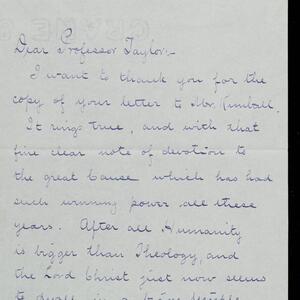 Dear Professor Taylor:-
I want to thank you for the
copy of your letter to Mr. Kimball.
It rings true, and with that
fine clear note of devotion to
the great Cause which has had
such winning power all these
years. After all Humanity
is bigger than Theology, and
the Lord Christ just now seems
to dwell in a